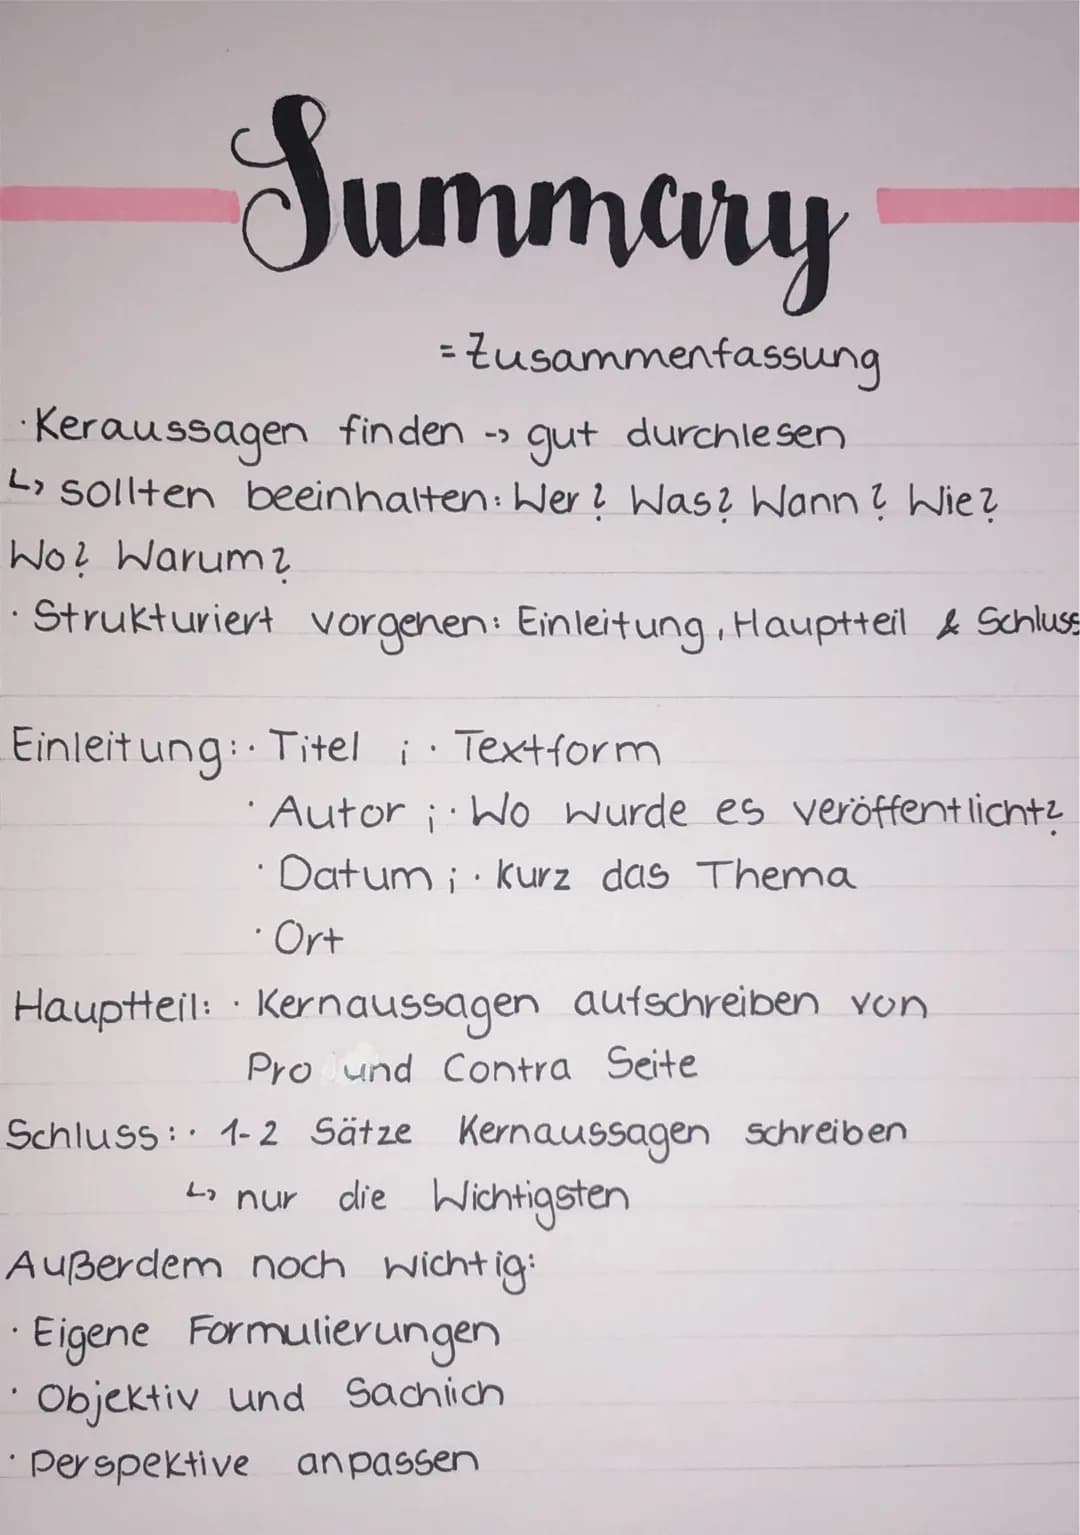 Summary
= Zusammenfassung
· Keraussagen finden -> gut durchlesen
↳ sollten beeinhalten: Wer? Was? Wann? Wie?
Wo? Warum?
· Strukturiert vorgehen: Einleitung, Hauptteil & Schluss
Einleitung: · Titel ; · Textform
· Autor ; · Wo wurde es veröffentlicht?
· Datum ; · kurz das Thema
· Ort
Hauptteil: · Kernaussagen aufschreiben von
Pro und Contra Seite
Schluss: · 1-2 Sätze Kernaussagen schreiben
↳ nur die Wichtigsten
Außerdem noch wichtig:
· Eigene Formulierungen
· Objektiv und Sachlich
· Perspektive anpassen